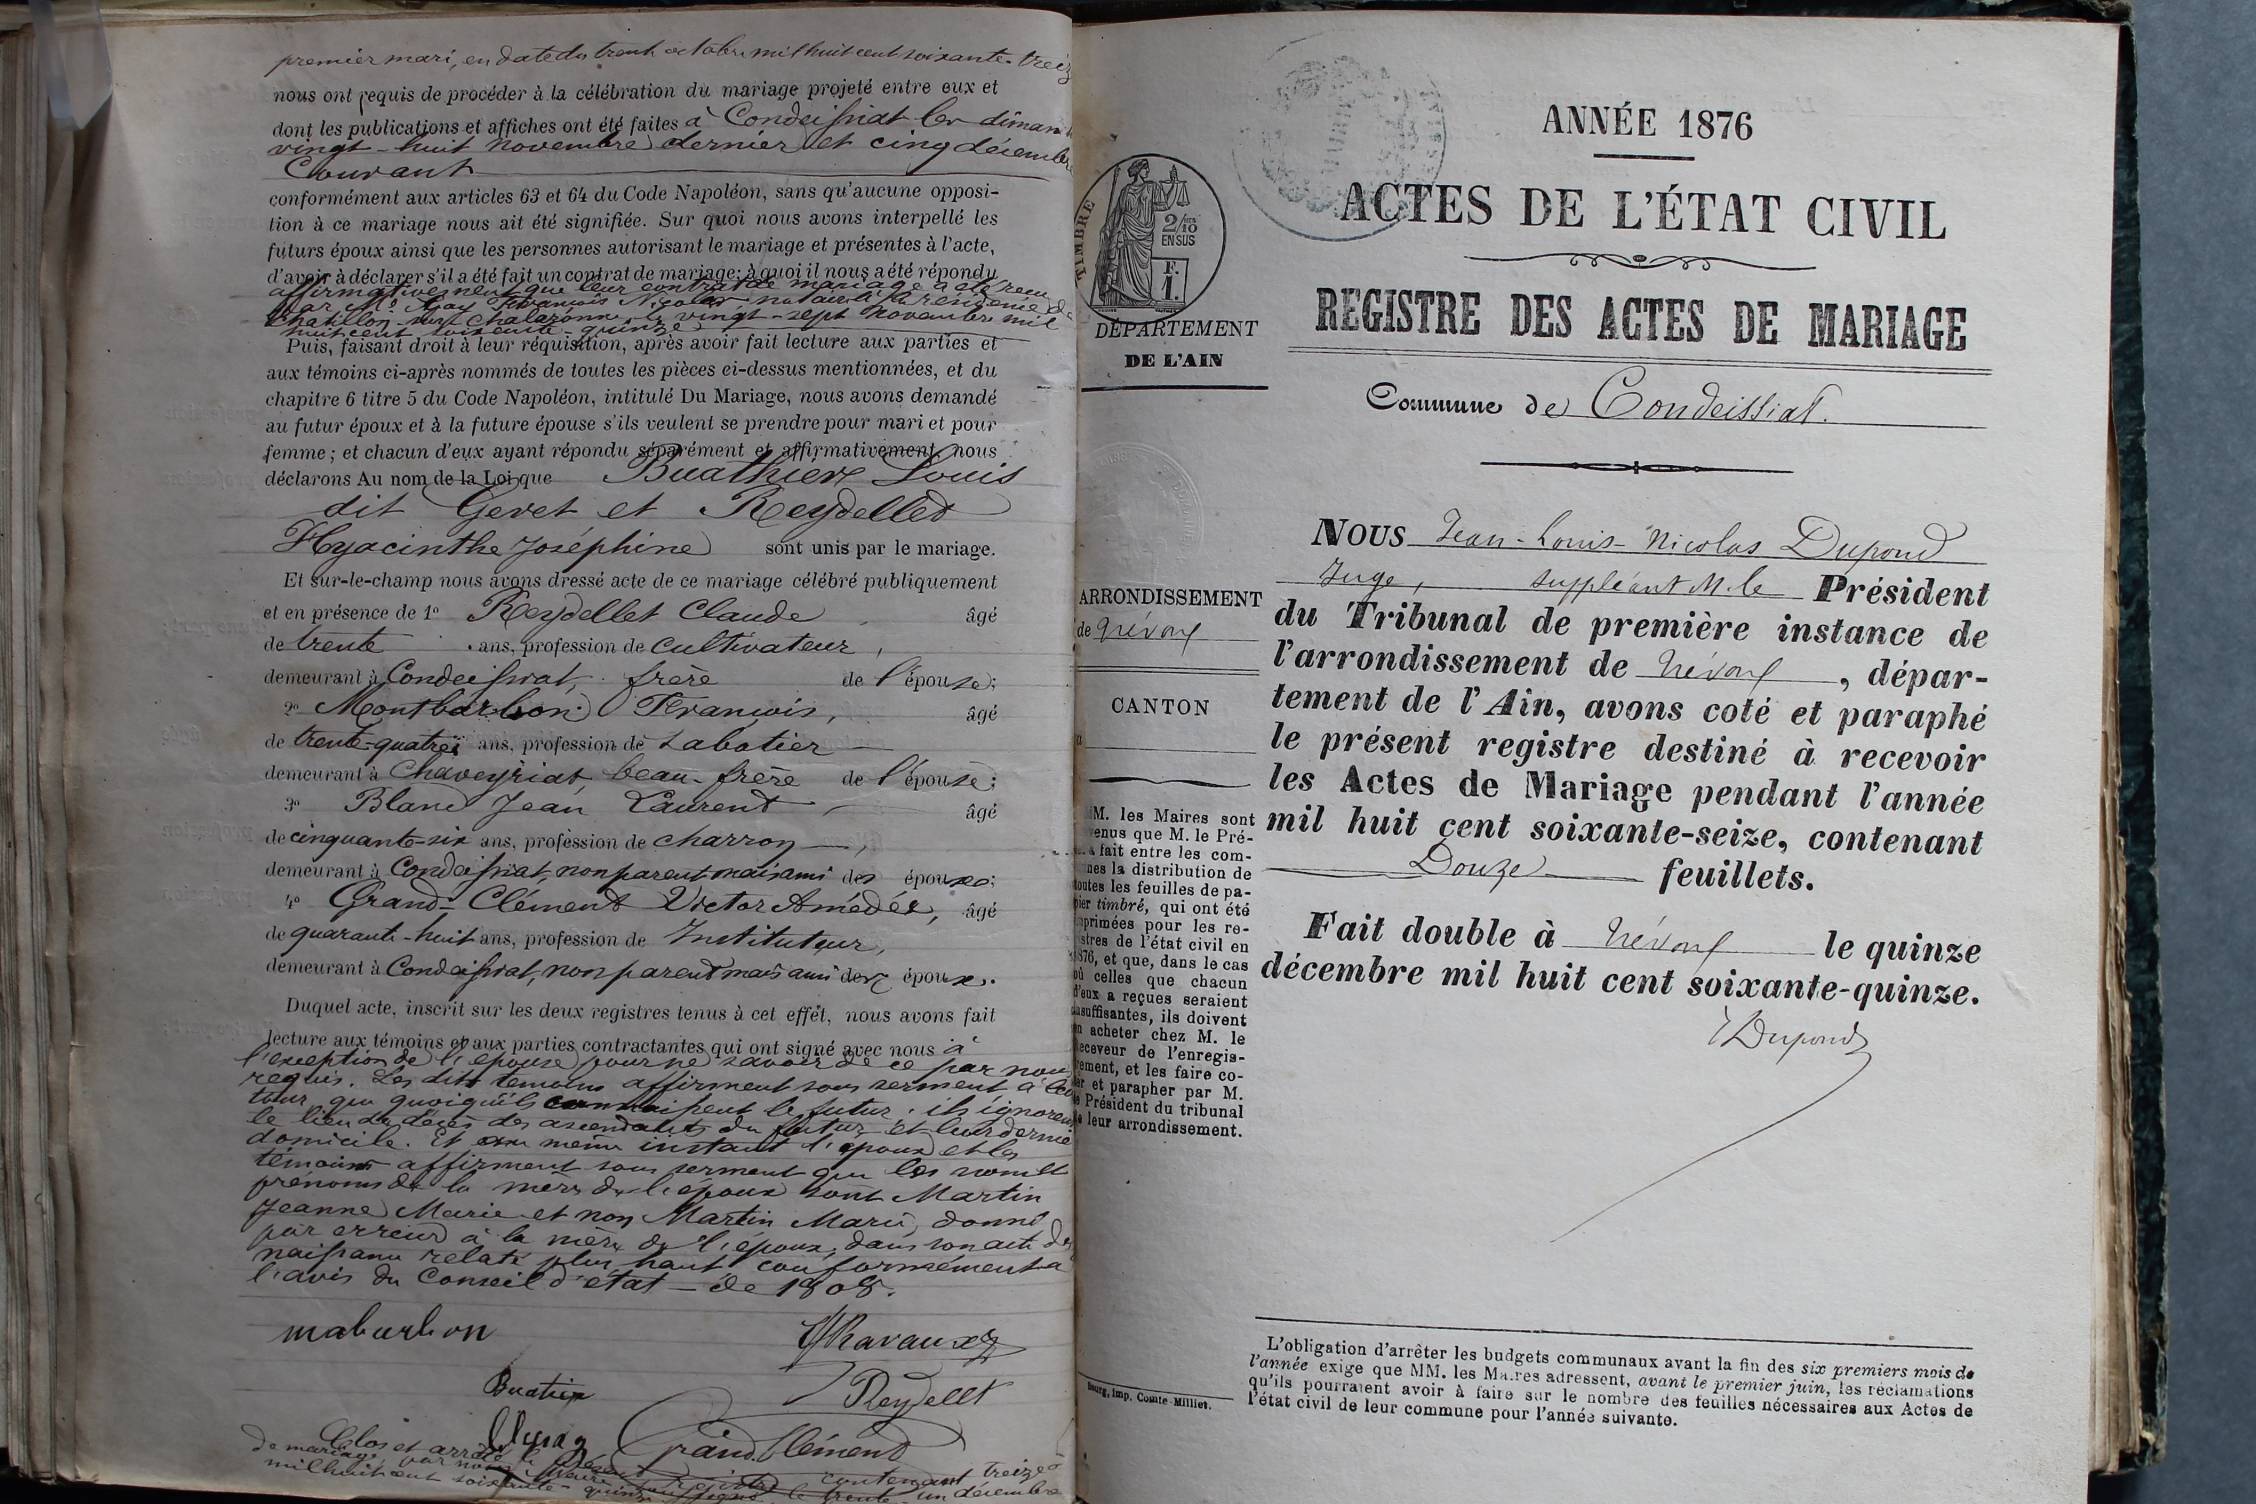 premier mari, en date du trente octobre mil huit cent soixante-treize
nous ont requis de procéder à la célébration du mariage projeté entre eux et
dont les publications et affiches ont été faites à Condeissiat les diman
vingt-huit novembre dernier et cinq décembre
Courant
conformément aux articles 63 et 64 du Code Napoléon, sans qu'aucune opposi-
tion à ce mariage nous ait été signifiée. Sur quoi nous avons interpellé les
futurs époux ainsi que les personnes autorisant le mariage et présentes à l'acte,
d'avoir à déclarer s'il a été fait un contrat de mariage; à quoi il nous a été répondu
affirmativement que leur contrat de mariage a été reçu
par Me François Nicolas notaire à la résidence de
Chatillon sur Chalaronne le vingt-sept novembre mil
huit cent soixante-quinze
Puis, faisant droit à leur réquisition, après avoir fait lecture aux parties et
aux témoins ci-après nommés de toutes les pièces ci-dessus mentionnées, et du
chapitre 6 titre 5 du Code Napoléon, intitulé Du Mariage, nous avons demandé
au futur époux et à la future épouse s'ils veulent se prendre pour mari et pour
femme; et chacun d'eux ayant répondu séparément et affirmativement, nous
déclarons Au nom de la Loi que Buathier Louis
dit Gevet et Reydellet
Hyacinthe Joséphine sont unis par le mariage.
Et sur-le-champ nous avons dressé acte de ce mariage célébré publiquement
et en présence de 1º Reydellet Claude âgé
de trente ans, profession de cultivateur,
demeurant à Condeissiat, frère de l'épouse;
2º Montbarbon François, âgé
de trente-quatre ans, profession de sabotier
demeurant à Chaveyriat, beau-frère de l'épouse;
3º Blanc Jean Laurent âgé
de cinquante-six ans, profession de charron,
demeurant à Condeissiat, non parent mais ami des époux;
4º Grand-Clément Victor Amédée, âgé
de quarante-huit ans, profession de Instituteur,
demeurant à Condeissiat, non parent mais ami des époux.
Duquel acte, inscrit sur les deux registres tenus à cet effet, nous avons fait
lecture aux témoins et aux parties contractantes qui ont signé avec nous à
l'exception de l'épouse pour ne savoir de ce par nous
requis. Les dits témoins affirment sous serment à leur
tour que quoiqu'ils connaissent le futur, ils ignorent
le lieu du décès des ascendants du futur et leur dernier
domicile. Et au même instant l'époux et les
témoins affirment sous serment que les nom et
prénoms de la mère de l'époux sont Martin
Jeanne Marie et non Martin Marie, donné
par erreur à la mère de l'époux, dans son acte de
naissance relaté plus haut conformément à
l'avis du Conseil d'état de 1808.
maburbon
Ravaux
Buatier
Reydellet
Grand Clément
Clos et arrêté le présent registre contenant treize
de mariage, par nous Maire soussigné le trente-un décembre
mil huit cent soixante-quinze
ANNÉE 1876
ACTES DE L'ÉTAT CIVIL
REGISTRE DES ACTES DE MARIAGE
Commune de Condeissiat.
TIMBRE
2/10
EN SUS
F.
1.
DÉPARTEMENT
DE L'AIN
ARRONDISSEMENT
de Trévoux
CANTON
MM. les Maires sont
venus que M. le Pré-
a fait entre les com-
nes la distribution de
toutes les feuilles de pa-
pier timbré, qui ont été
mprimées pour les re-
stres de l'état civil en
1876, et que, dans le cas
où celles que chacun
d'eux a reçues seraient
insuffisantes, ils doivent
en acheter chez M. le
Receveur de l'enregis-
rement, et les faire co-
ter et parapher par M.
le Président du tribunal
de leur arrondissement.
Nous Jean-Louis-Nicolas Dupond
Juge, suppléant M. le Président
du Tribunal de première instance de
l'arrondissement de Trévoux, dépar-
tement de l'Ain, avons coté et paraphé
le présent registre destiné à recevoir
les Actes de Mariage pendant l'année
mil huit cent soixante-seize, contenant
Douze feuillets.
Fait double à Trévoux le quinze
décembre mil huit cent soixante-quinze.
Dupond
Bourg, imp. Comte-Milliet.
L'obligation d'arrêter les budgets communaux avant la fin des six premiers mois de
l'année exige que MM. les Maires adressent, avant le premier juin, les réclamations
qu'ils pourraient avoir à faire sur le nombre des feuilles nécessaires aux Actes de
l'état civil de leur commune pour l'année suivante.